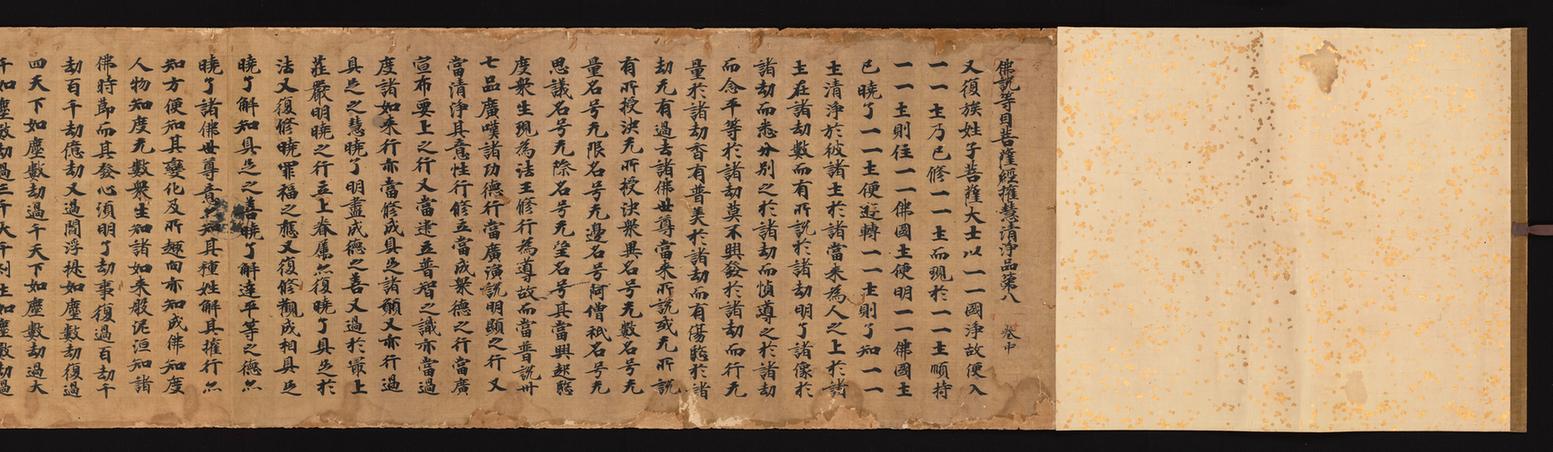 佛說等目菩薩經權慧清淨品第八 卷中
又復族姓子菩薩大士以一一國淨故便入
一一土乃已修一一土而現於一一土順持
一一土則住一一佛國土便明一一佛國土
已曉了一一土便遊轉一一土則了知一一
土清淨於彼諸土於諸當来為人之上於諸
土在諸劫數而有所說於諸劫明了諸像於
諸劫而悉分別之於諸劫而慎尊之於諸劫
而念平等於諸劫莫不興發於諸劫而行无
量於諸劫香有普美於諸劫而有傷於諸
劫无有過去諸佛世尊當来所說或无所說
有所授决无所授决眾異名号无數名号无
量名号无限名号无邊名号阿僧祇名号无
思議名号无除名号无名号其當興起愍
度衆生現為法王修行為尊故而當普說卅
七品廣嘆諸功德行當廣演說明顯之行又
當清淨其意性行修立當成衆德之行當廣
宣布要上之行又當逮立普智之識亦當過
度諸如来行亦當修成具足諸願又亦行過
具足之慧曉了明盡成德之善又過於最上
莊嚴明曉之行立上眷属然復曉了具足於
法又復修曉罪福之應又復修觀成相具足
曉了解知具足之善曉了解達平等之德然
曉了諸佛世尊意然知其種姓解其權行然
知方便知其變化及所趣向亦知成佛知度
人物知度无數衆生知諸如来般泥洹知諸
佛時節而其發心須明了劫事復過百劫千
劫百千劫億劫又過閻浮提如塵數劫復過
四天下如塵數劫過千天下如塵數劫過大
千如塵數劫過三千大千剎土如塵數劫過